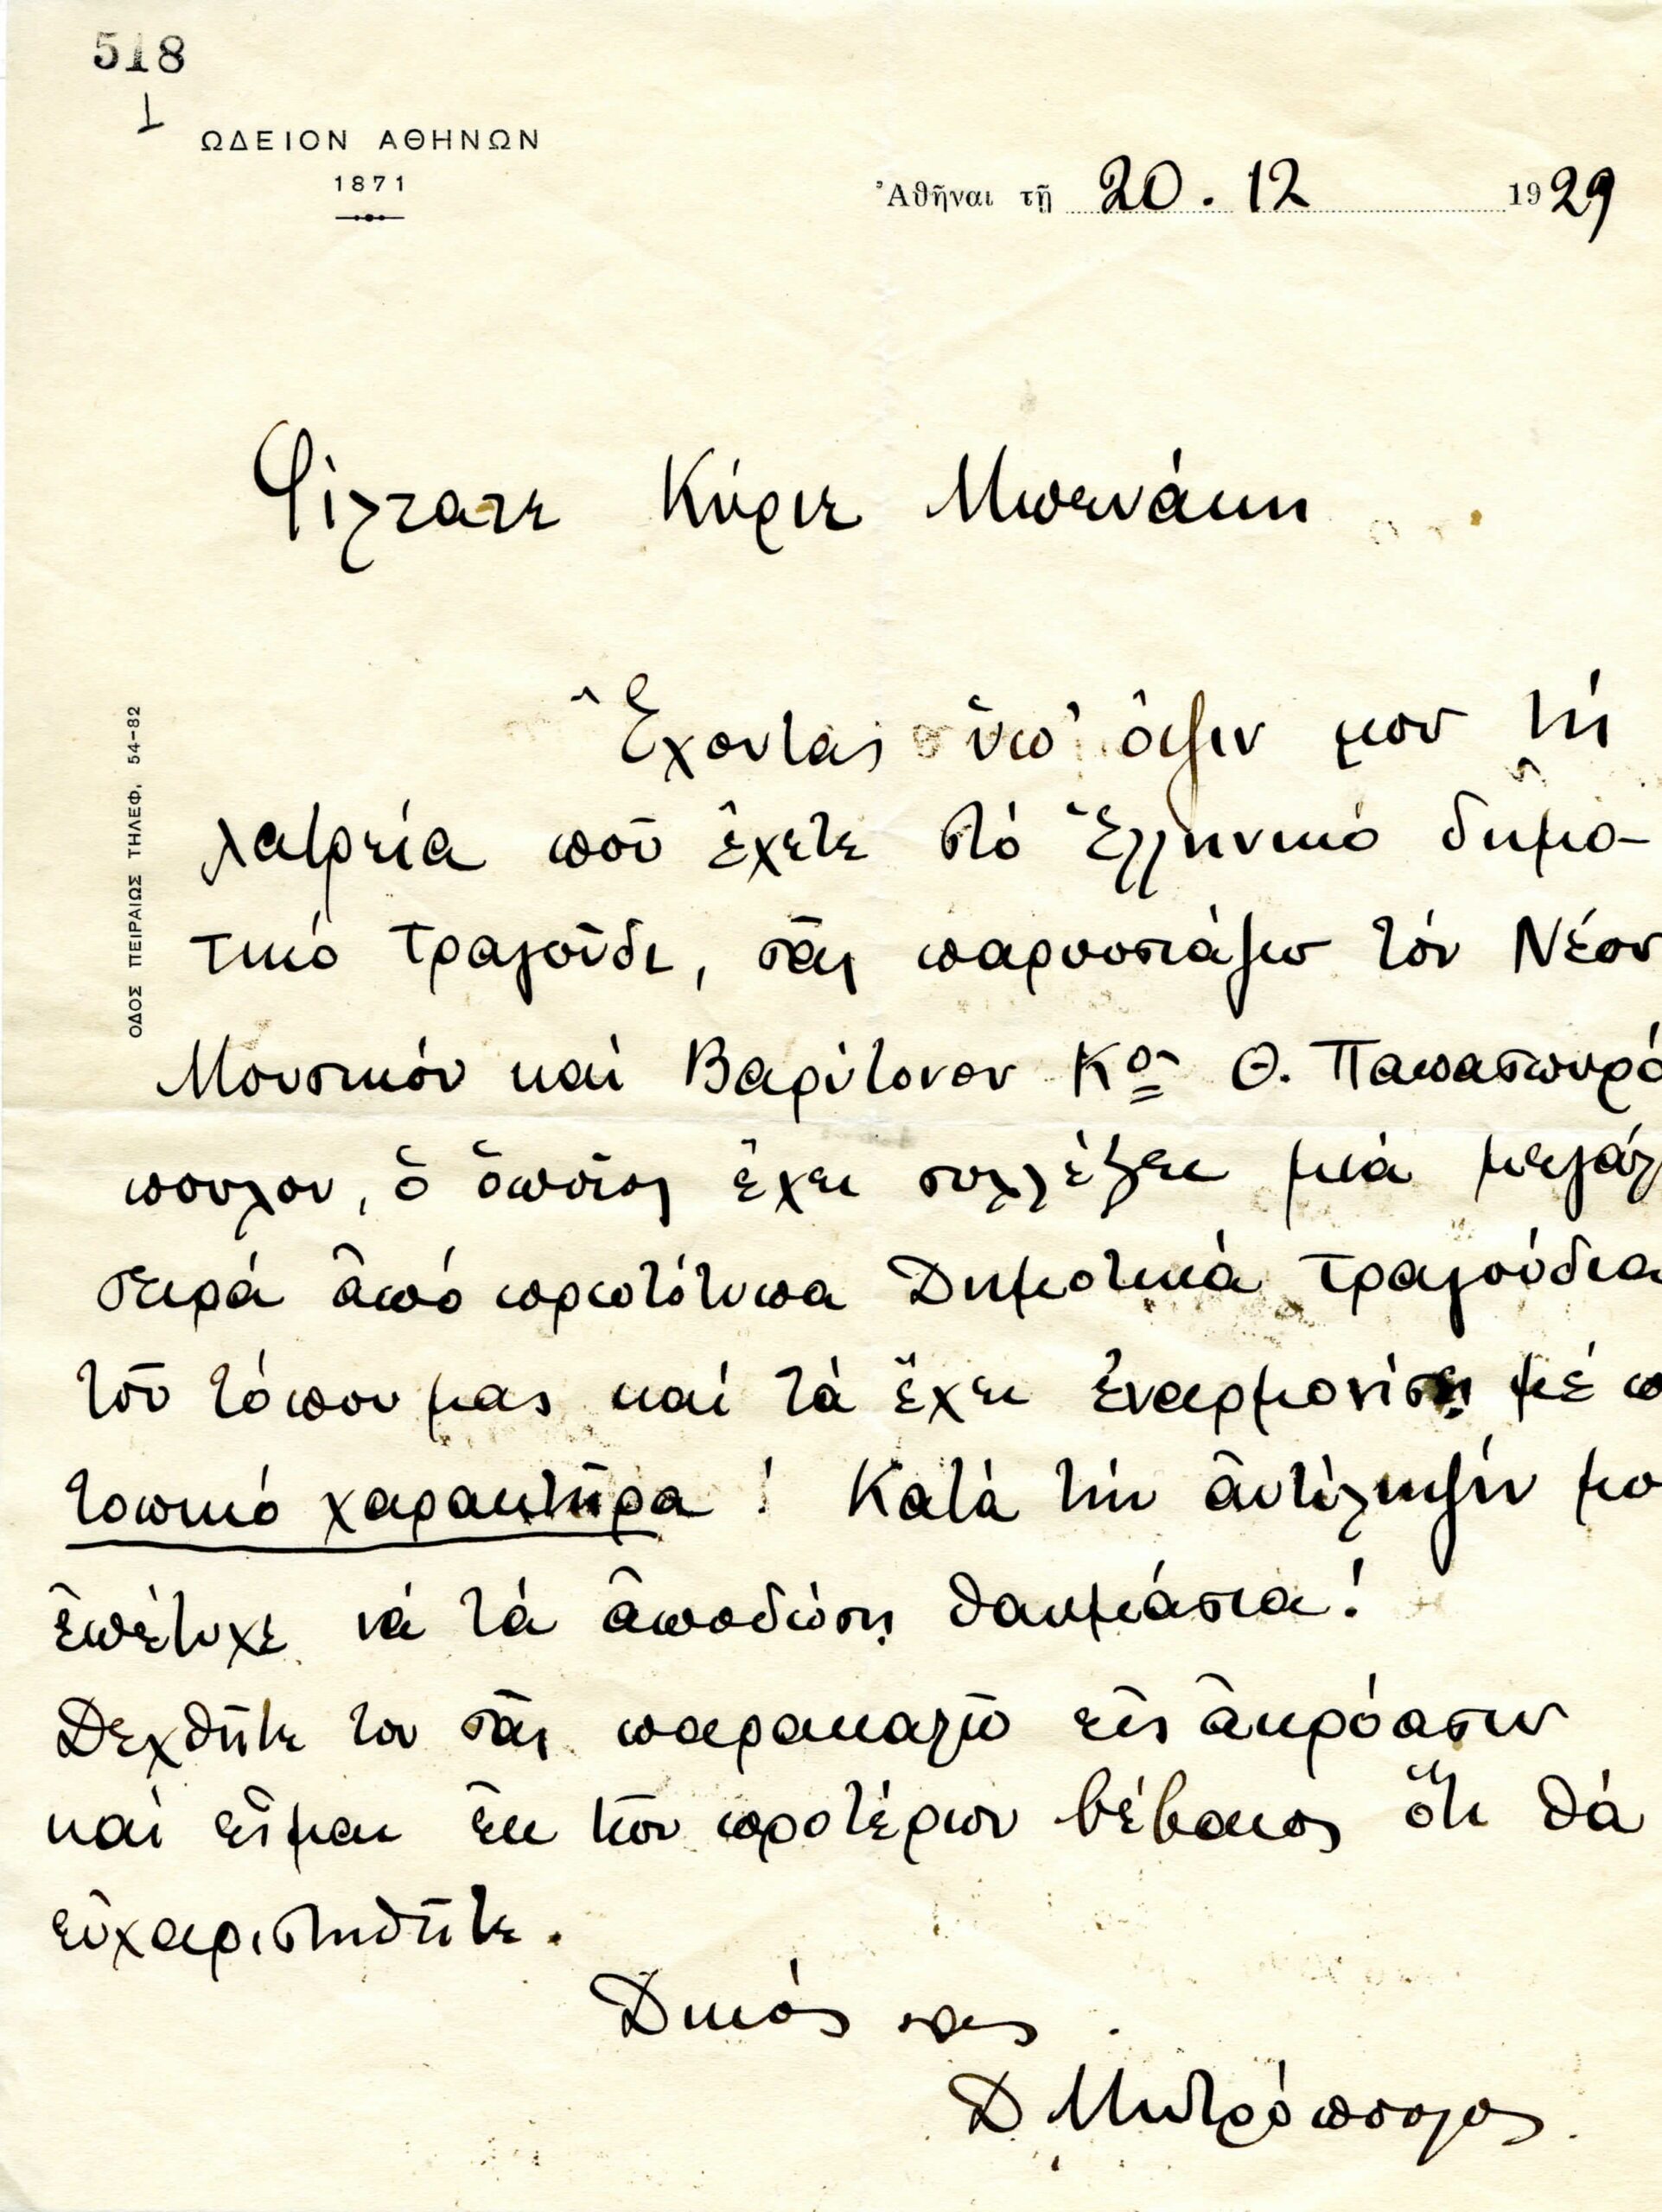 518
1
ΩΔΕΙΟΝ ΑΘΗΝΩΝ
1871
Ἀθῆναι τῇ 20 . 12 1929
ΟΔΟΣ ΠΕΙΡΑΙΩΣ ΤΗΛΕΦ. 54-82
Φίλτατε Κύριε Μπενάκη
Ἔχοντας ὑπ' ὄψιν μου τή
λατρεία ποῦ ἔχετε στό Ἑλληνικό δημο-
τικό τραγοῦδι, σᾶς παρουσιάζω τόν Νέον
Μουσικόν καί Βαρύτονον Κον Θ. Παπασπυρό
πουλον, ὁ ὁποῖος ἔχει συλλέξει μιά μεγάλ
σειρά ἀπό πρωτότυπα Δημοτικά τραγούδια
τοῦ τόπου μας καί τά ἔχει ἐναρμονίσῃ μέ π
τοπικό χαρακτῆρα ! Κατά τήν ἀντίληψίν μο
ἐπέτυχε νά τά ἀποδώσῃ θαυμάσια!
Δεχθῆτε τον σᾶς παρακαλῶ εἰς ἀκρόασιν
καί εἶμαι ἐκ τῶν προτέρων βέβαιος ὅτι θά
εὐχαριστηθῆτε.
Δικός σας
Δ Μητρόπουλος